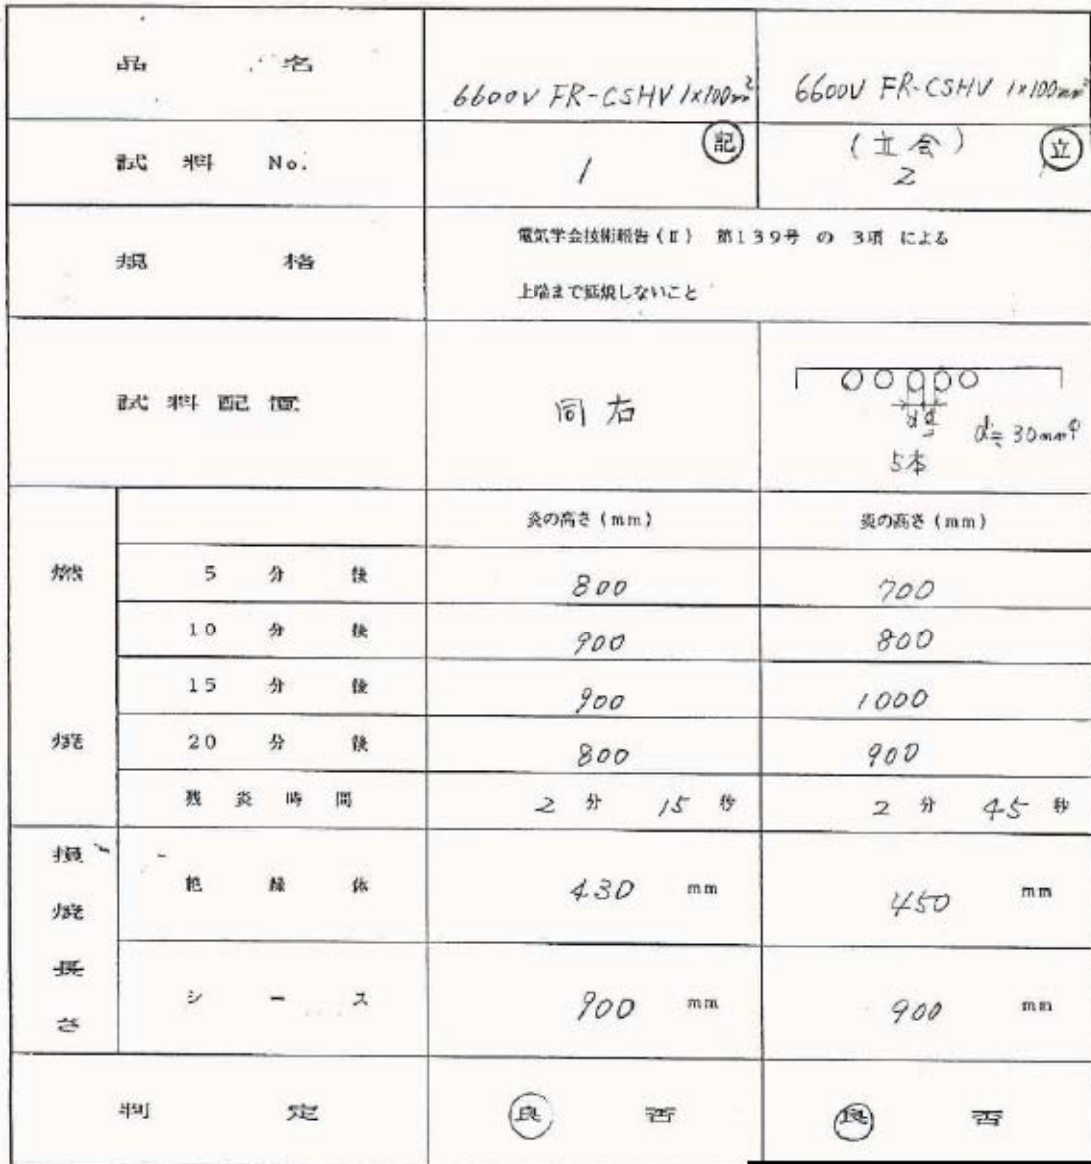 品 名 6600V FR-CSHV 1×100mm² 6600V FR-CSHV 1×100mm²
試料 No. 1 記 (立会) 2 立
規 格 電気学会技術報告(Ⅱ) 第139号 の 3項 による
上端まで延焼しないこと
試料配置 同右
d d
d≒30mmφ
5本
燃焼 炎の高さ(mm) 炎の高さ(mm)
5 分 後 800 700
10 分 後 900 800
15 分 後 900 1000
20 分 後 800 900
残炎時間 2分 15秒 2分 45秒
損焼長さ 絶縁体 430 mm 450 mm
シース 900 mm 900 mm
判 定 良 否 良 否